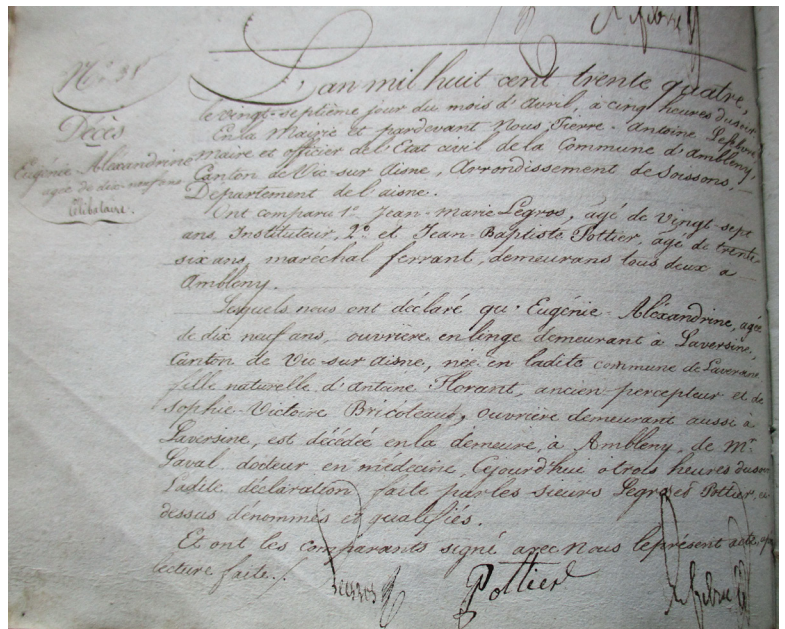 Lefebvre
N.º 31
Décès
Eugénie Aléxandrine
agée de dix-neuf ans
Célibataire.
L'an mil huit cent trente quatre,
le vingt-septième jour du mois d'Avril, à cinq heures du soir
En la Mairie et pardevant Nous Pierre-Antoine Lefebvre,
Maire et officier de l'Etat civil de la Commune d'Ambleny,
Canton de Vic-sur aisne, Arrondissement de Soissons.
Département de l'aisne.
Ont comparu 1º Jean-Marie Legros, agé de vingt-sept
ans, Instituteur, 2º et Jean-Baptiste Pottier, agé de trente-
six ans, maréchal ferrant, demeurans tous deux à
Ambleny.
Lesquels nous ont déclaré qu'Eugénie-Aléxandrine, agée
de dix neuf ans, ouvrière en linge demeurant à Laversine,
Canton de Vic-sur-aisne, née en ladite commune de Laversine
fille naturelle d'Antoine Florant, ancien percepteur et de
Sophie-Victoire Bricoteaux, ouvrière demeurant aussi à
Laversine, est décédée en la demeure, à Ambleny, de Mr
Laval docteur en médecine, Cejourd'hui à trois heures du soir
Ladite déclaration faite par les sieurs Legros et Pottier, ci
dessus dénommés et qualifiés.
Et ont les comparants signé avec Nous le présent acte, après
lecture faite./.
Legros Pottier Lefebvre